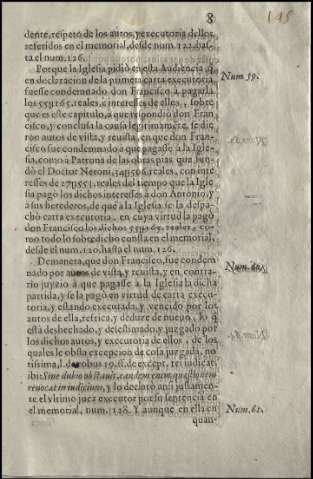 8
145
dente, respeto de los autos, y executoria dellos,
referidos en el memorial, desde num. 122. has-
ta el num. 126.
Porque la Iglesia pidiò en esta Audiencia, q̃
en declaracion de la primera carta executoria,
fuesse condenado don Francisco à pagarla
los reales, è interesses de ellos, sobre
que es este capitulo, à que respondiò don Fran-
cisco, y conclusa la causa legitimamẽte, se die-
ron autos de vista, y reuista, en que don Fran-
cisco fue condenado a que pagasse à la Igle-
sia, como à Patrona de las obras pias, que fun-
dò el Doctor Neroni, reales, con inte-
resses de reales del tiempo que la Igle-
sia pagò los dichos interesses à don Antonio, y
à sus herederos, de que à la Iglesia se la despa-
chò carta executoria, en cuya virtud la pagò
don Francisco los dichos reales, co-
mo todo lo sobredicho consta en el memorial,
desde el num. 120. hasta el num. 126.
Demanera, que don Francisco, fue conde-
nado por autos de vista, y reuista, y en contra-
rio juyzio à que pagasse à la Iglesia la dicha
partida, y se la pagò en virtud de carta execu-
toria, y estando executada, y vencido por los
autos de ella, refrica, y deduze de nueuo, lo q̃
està deshechado, y determinado, y juzgado por
los dichos autos, y executoria de ellos, de los
quales le obsta excepcion de cosa juzgada, no-
tissima, l. duobus 19. ff. de except. rei iudicat.
ibi: Sine dubio obstauit, eandem enim quæstionem
reuocat in iudicium, y lo declarò assi justamen-
te el vltimo juez executor por su sentencia en
el memorial, num. 128. Y aunque en esta en
quan-
Num 59.
Num. 60.
Num. 61.